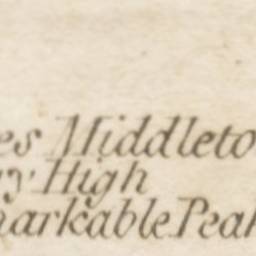 es Middleto
ry High
arkable Peak